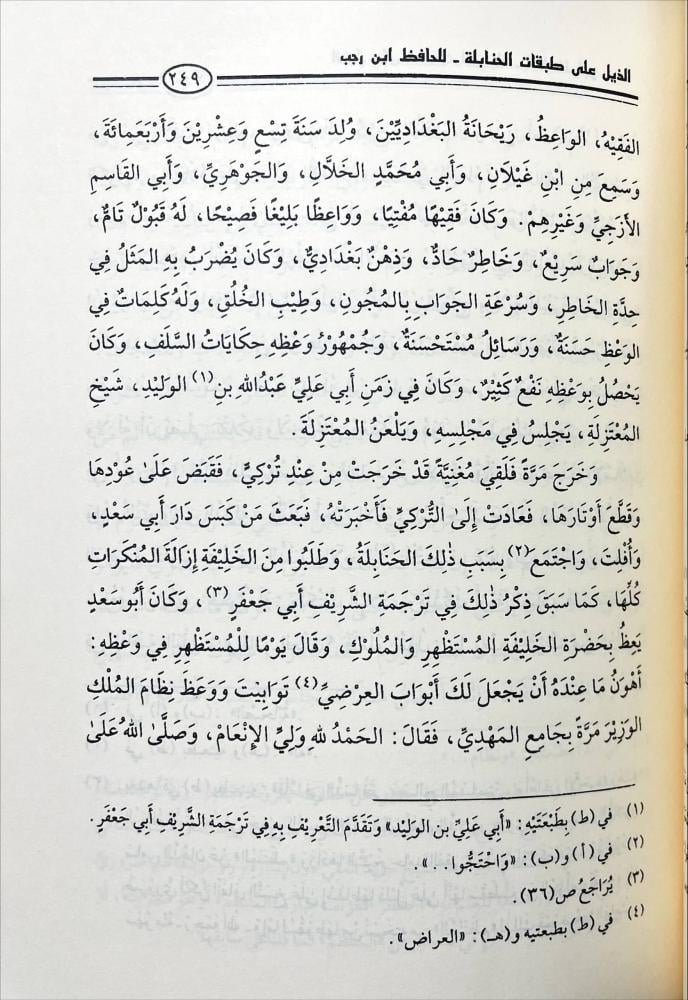 الذيل على طبقات الحنابلة - للحافظ ابن رجب
٢٤٩
الفَقِيْهُ، الوَاعِظُ، رَيْحَانَةُ البَغْدَادِيِّيْنَ، وُلِدَ سَنَةَ تِسْعٍ وَعِشْرِيْنَ وَأَرْبَعِمَائَةَ،
وَسَمِعَ مِنِ ابْنِ غَيْلَانِ، وَأَبِي مُحَمَّدٍ الخَلَّالِ، وَالجَوْهَرِيِّ، وَأَبِي القَاسِمِ
الأَزَجِيِّ وَغَيْرِهِمْ. وَكَانَ فَقِيْهًا مُفْتِيًا، وَوَاعِظًا بَلِيْغًا فَصِيْحًا، لَهُ قَبُوْلٌ تَامٌّ،
وَجَوَابٌ سَرِيْعٌ، وَخَاطِرٌ حَادٌّ، وَذِهْنٌ بَغْدَادِيٌّ، وَكَانَ يُضْرَبُ بِهِ المَثَلُ فِي
حِدَّةِ الخَاطِرِ، وَسُرْعَةِ الجَوَابِ بِالمُجُونِ، وَطِيْبِ الخُلُقِ، وَلَهُ كَلِمَاتٌ فِي
الوَعْظِ حَسَنَةٌ، وَرَسَائِلُ مُسْتَحْسَنَةٌ، وَجُمْهُوْرُ وَعْظِهِ حِكَايَاتُ السَّلَفِ، وَكَانَ
يَحْصُلُ بِوَعْظِهِ نَفْعٌ كَثِيْرٌ، وَكَانَ فِي زَمَنِ أَبِي عَلِيٍّ عَبْدُاللهِ بنِ(١) الوَلِيْدِ، شَيْخِ
المُعْتَزِلَةِ، يَجْلِسُ فِي مَجْلِسِهِ، وَيَلْعَنُ المُعْتَزِلَةَ.
وَخَرَجَ مَرَّةً فَلَقِيَ مُغَنِّيَةً قَدْ خَرَجَتْ مِنْ عِنْدِ تُرْكِيٍّ، فَقَبَضَ عَلَىٰ عُوْدِهَا
وَقَطَّعَ أَوْتَارَهَا، فَعَادَتْ إِلَىٰ التُّرْكِيِّ فَأَخْبَرَتْهُ، فَبَعَثَ مَنْ كَبَسَ دَارَ أَبِي سَعْدٍ،
وَأُفْلِتَ، وَاجْتَمَعَ(٢) بِسَبَبِ ذٰلِكَ الحَنَابِلَةُ، وَطَلَبُوا مِنَ الخَلِيْفَةِ إِزَالَةَ المُنْكَرَاتِ
كُلِّهَا، كَمَا سَبَقَ ذِكْرُ ذٰلِكَ فِي تَرْجَمَةِ الشَّرِيْفِ أَبِي جَعْفَرٍ(٣)، وَكَانَ أَبُو سَعْدٍ
يَعِظُ بِحَضْرَةِ الخَلِيْفَةِ المُسْتَظْهِرِ وَالمُلُوْكِ، وَقَالَ يَوْمًا لِلْمُسْتَظْهِرِ فِي وَعْظِهِ:
أَهْوَنُ مَا عِنْدَهُ أَنْ يَجْعَلَ لَكَ أَبْوَابَ العِرْضِيِّ(٤) تَوَابِيْتَ وَوَعَظَ نِظَامَ المُلْكِ
الوَزِيْرَ مَرَّةً بِجَامِعِ المَهْدِيِّ، فَقَالَ: الحَمْدُ للهِ وَلِيِّ الإِنْعَامِ، وَصَلَّىٰ اللهُ عَلَىٰ
(١) في (ط) بِطَبْعَتَيْهِ: «أَبِي عَلِيِّ بنِ الوَلِيْدِ» وَتَقَدَّمَ التَّعْرِيْفِ بِهِ فِي تَرْجَمَةِ الشَّرِيْفِ أَبِي جَعْفَرٍ.
(٢) في (أ) و(ب): «وَاحْتَجُّوا..».
(٣) يُرَاجَعُ ص (٣٦).
(٤) في (ط) بطبعتيه و(هـ): «العراض».